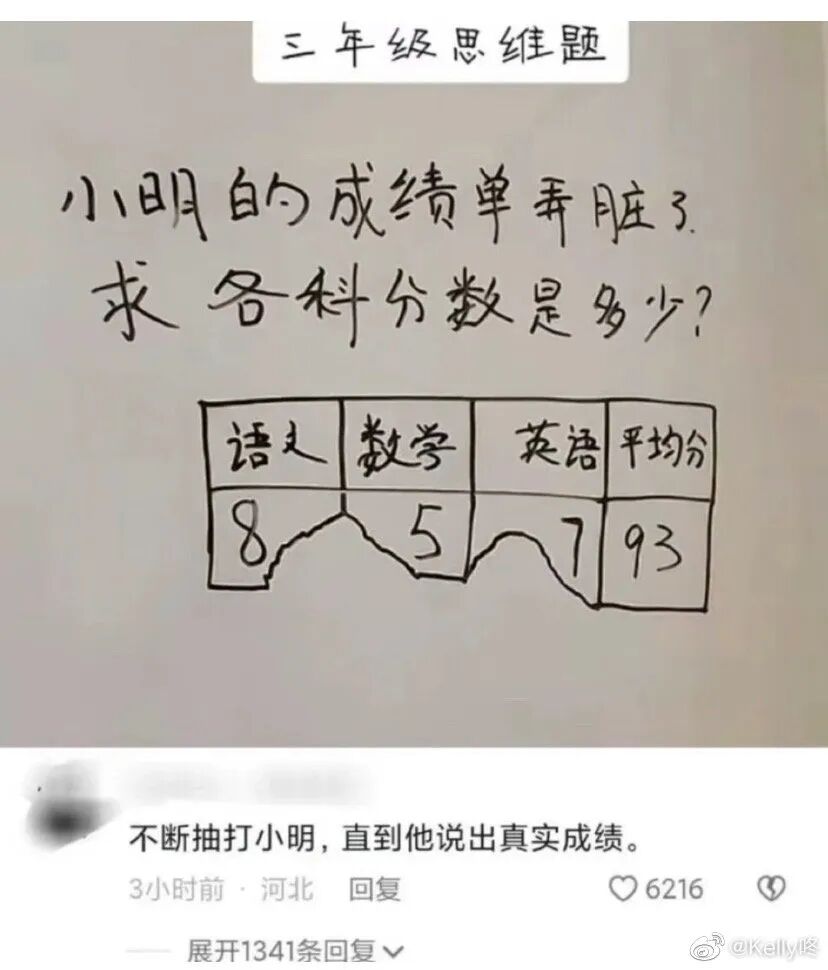 三年级思维题
小明的成绩单弄脏了.
求各科分数是多少?
语文 数学 英语 平均分
8 5 7 93
不断抽打小明，直到他说出真实成绩。
3小时前 · 河北 回复 6216
展开1341条回复
@Kelly咚